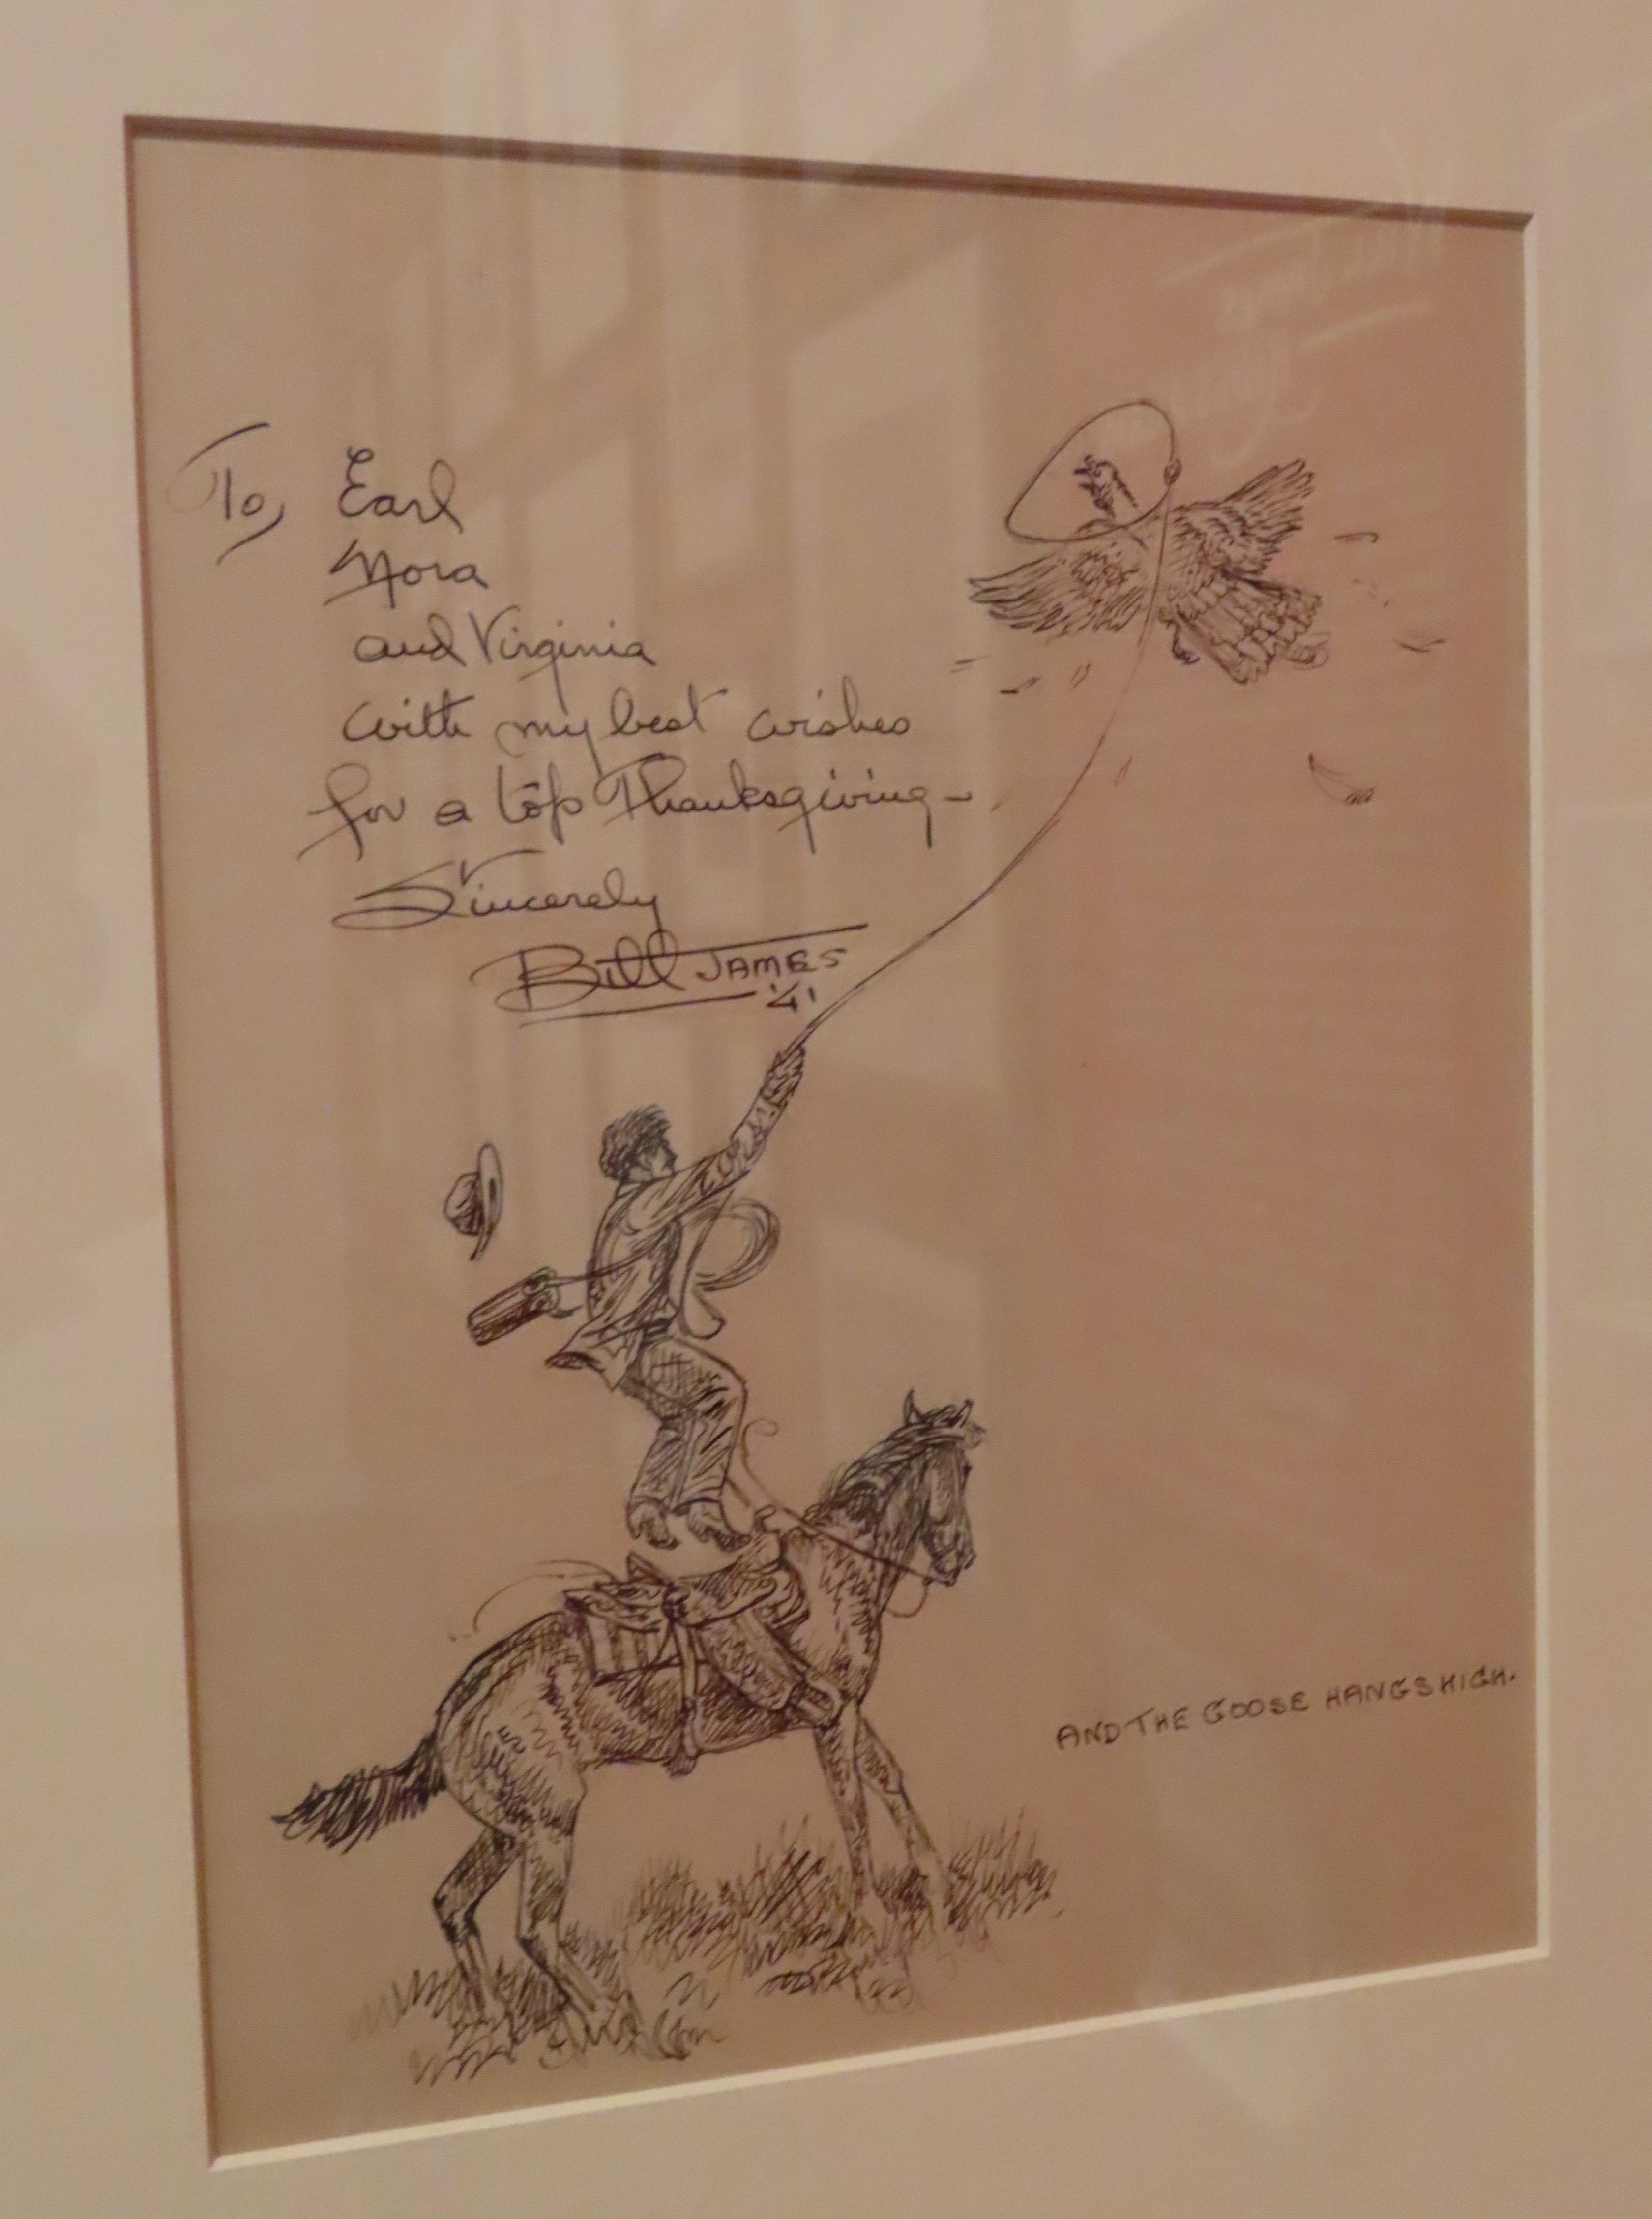 To, Earl
Nora
and Virginia
with my best wishes
for a top Thanksgiving-
Sincerely
Bill JAMES
'41
AND THE GOOSE HANGS HIGH.